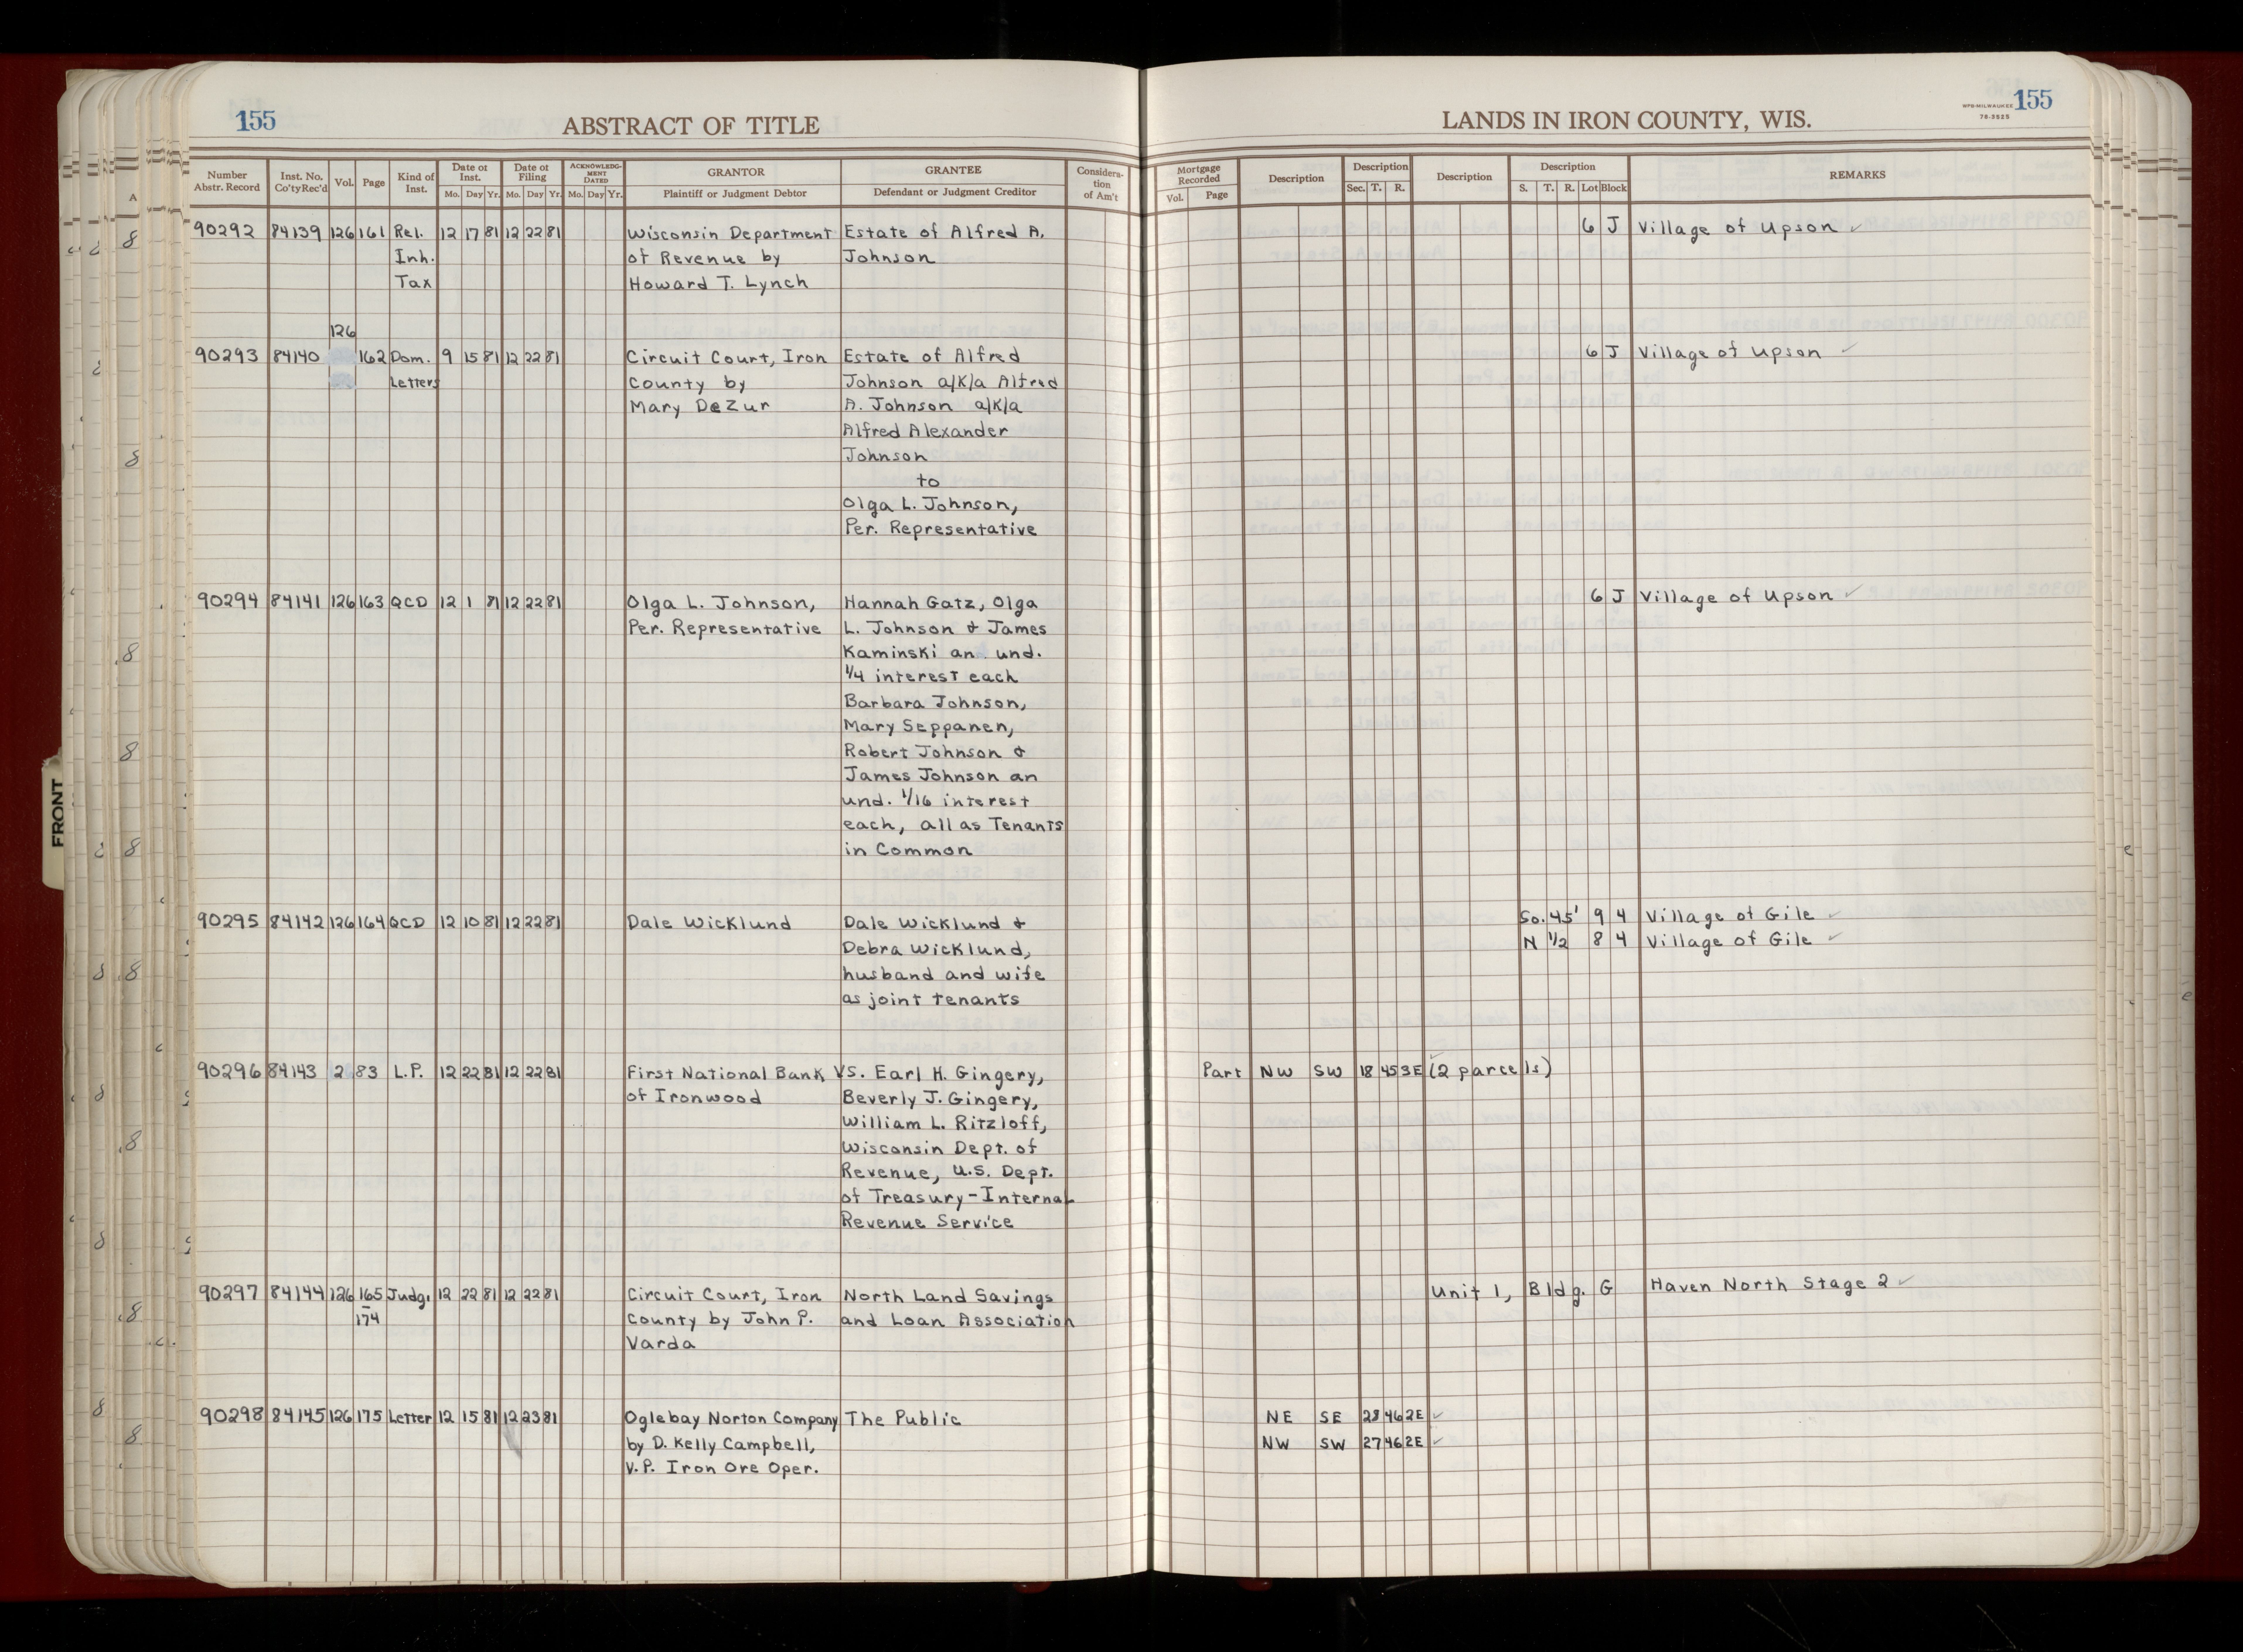 155
ABSTRACT OF TITLE
LANDS IN IRON COUNTY, WIS.
WPB-MILWAUKEE
76-3525
155
Number Abstr. Record
Inst. No. Co'tyRec'd
Vol.
Page
Kind of Inst.
Date of Inst.
Mo. Day Yr.
Date of Filing
Mo. Day Yr.
ACKNOWLEDGMENT DATED
Mo. Day Yr.
GRANTOR
Plaintiff or Judgment Debtor
GRANTEE
Defendant or Judgment Creditor
Consideration of Am't
Mortgage Recorded
Vol. Page
Description
Description
Sec. T. R.
Description
Description
S. T. R. Lot Block
REMARKS
90292 84139 126 161 Rel. 12 17 81 12 22 81 Wisconsin Department Estate of Alfred A. 6 J Village of Upson ✓
Inh. of Revenue by Johnson
Tax Howard T. Lynch
126
90293 84140 162 Dom. 9 15 81 12 22 81 Circuit Court, Iron Estate of Alfred 6 J Village of Upson ✓
Letters County by Johnson a/k/a Alfred
Mary DeZur A. Johnson a/k/a
Alfred Alexander
Johnson
to
Olga L. Johnson,
Per. Representative
90294 84141 126 163 QCD 12 1 81 12 22 81 Olga L. Johnson, Hannah Gatz, Olga 6 J Village of Upson ✓
Per. Representative L. Johnson & James
Kaminski an und.
1/4 interest each
Barbara Johnson,
Mary Seppanen,
Robert Johnson &
James Johnson an
und. 1/16 interest
each, all as Tenants
in Common
90295 84142 126 164 QCD 12 10 81 12 22 81 Dale Wicklund Dale Wicklund & So. 45' 9 4 Village of Gile ✓
Debra Wicklund, N 1/2 8 4 Village of Gile ✓
husband and wife
as joint tenants
90296 84143 2 83 L.P. 12 22 81 12 22 81 First National Bank VS. Earl H. Gingery, Part NW SW 18 45 3E (2 parcels)
of Ironwood Beverly J. Gingery,
William L. Ritzloff,
Wisconsin Dept. of
Revenue, U.S. Dept.
of Treasury-Internal
Revenue Service
90297 84144 126 165 Judg. 12 22 81 12 22 81 Circuit Court, Iron North Land Savings Unit 1, Bldg. G Haven North Stage 2 ✓
–174 County by John P. and Loan Association
Varda
90298 84145 126 175 Letter 12 15 81 12 23 81 Oglebay Norton Company The Public NE SE 28 46 2E ✓
by D. Kelly Campbell, NW SW 27 46 2E ✓
V.P. Iron Ore Oper.
FRONT